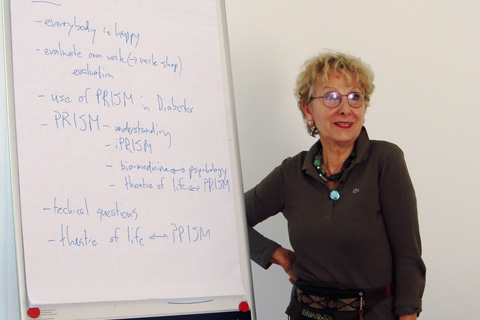 - everybody is happy
- evaluate own work (→ work shop)
evaluation
- use of PRISM in Diabetes
- PRISM - understanding
- iPRISM
- bio-medicine ↔ psychology
- theatre of life ↔ PRISM
- techical questions
- theatre of life ↔ iPRISM